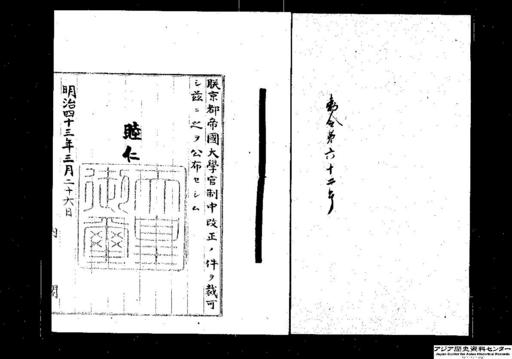 勅令第六十二号
朕京都帝國大學官制中改正ノ件ヲ裁可
シ茲ニ之ヲ公布セシム
睦仁
天皇御璽
明治四十三年三月二十六日
内閣
アジア歴史資料センター
Japan Center for Asian Historical Records